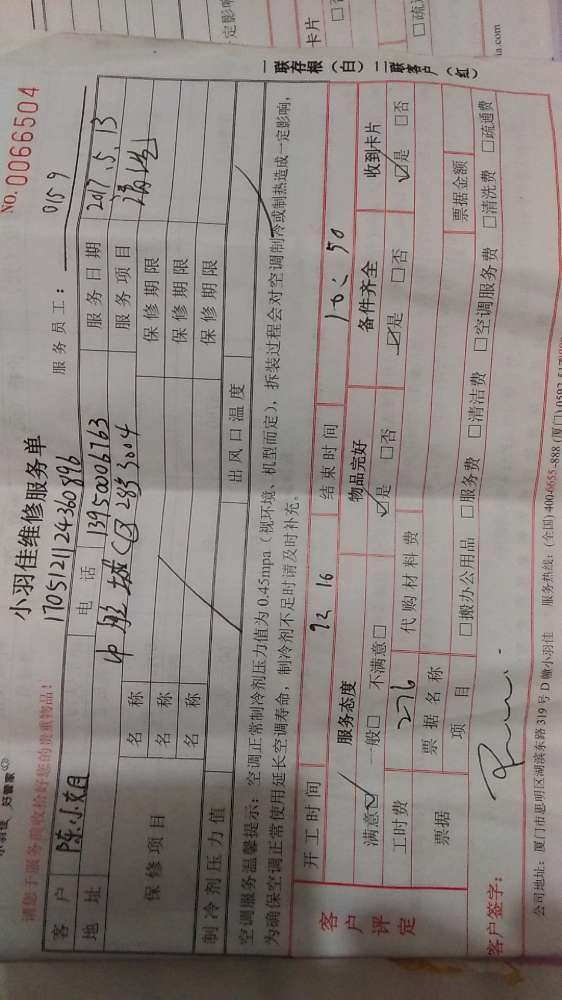 No.0066504
小羽佳维修服务单
1705121124360896
请您于服务前收拾好您的贵重物品！
服务员工： 0159
客户 电话 13950006763 服务日期 2017.5.13
地址 C区2853004 服务项目
保修项目 名称 保修期限
名称 保修期限
名称 保修期限
制冷剂压力值 出风口温度
空调服务温馨提示：空调正常制冷剂压力值为0.45mpa（视环境、机型而定），拆装过程会对空调制冷或制热造成一定影响，
为确保空调正常使用延长空调寿命，制冷剂不足时请及时补充。
开工时间 结束时间
客户评定 服务态度 物品完好 备件齐全 收到卡片
满意☑ 一般□ 不满意□ ☑是 □否 ☑是 □否 ☑是 □否
工时费 276 代购材料费
票据 票据名称 票据金额
项目 □搬办公用品 □服务费 □清洁费 □空调服务费 □清洗费 □疏通费
客户签字：
公司地址：厦门市思明区湖滨东路319号D幢小羽佳 服务热线：(全国)400-6655-888
一联存根（白） 二联客户（红）
卡片